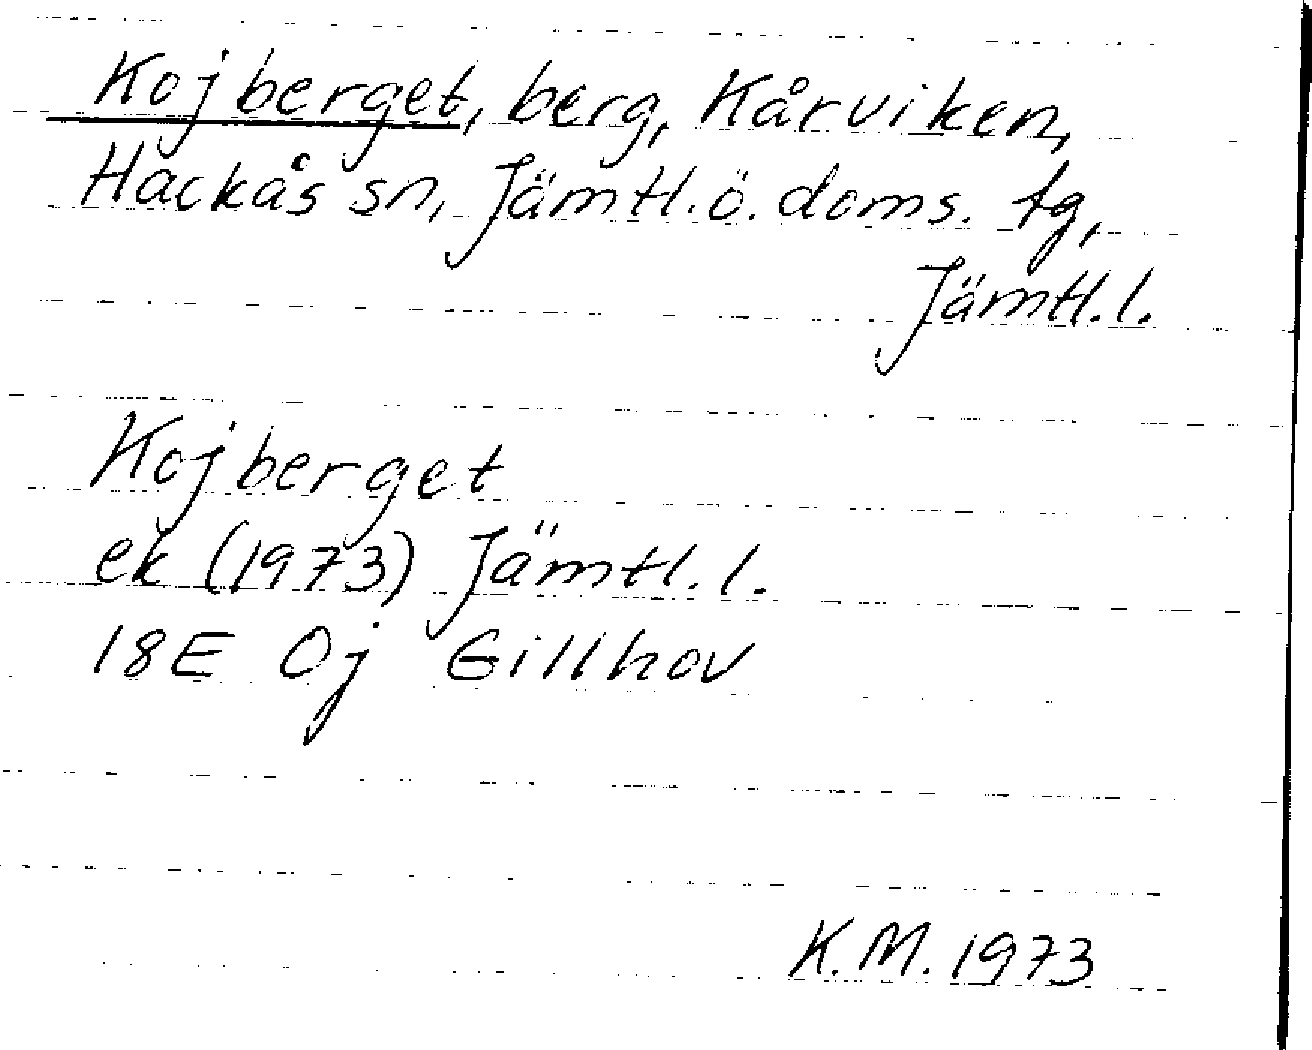 Kojberget, berg, Kårviken,
Hackås sn, Jämtl. ö. doms. tg,
Jämtl. l.
Kojberget
ek (1973) Jämtl. l.
18E 0j Gillhov
K.M. 1973